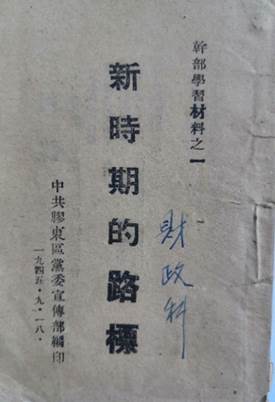 幹部學習材料之一
新時期的路標
財政科
中共膠東區黨委宣傳部編印
一九四五·九·一八·